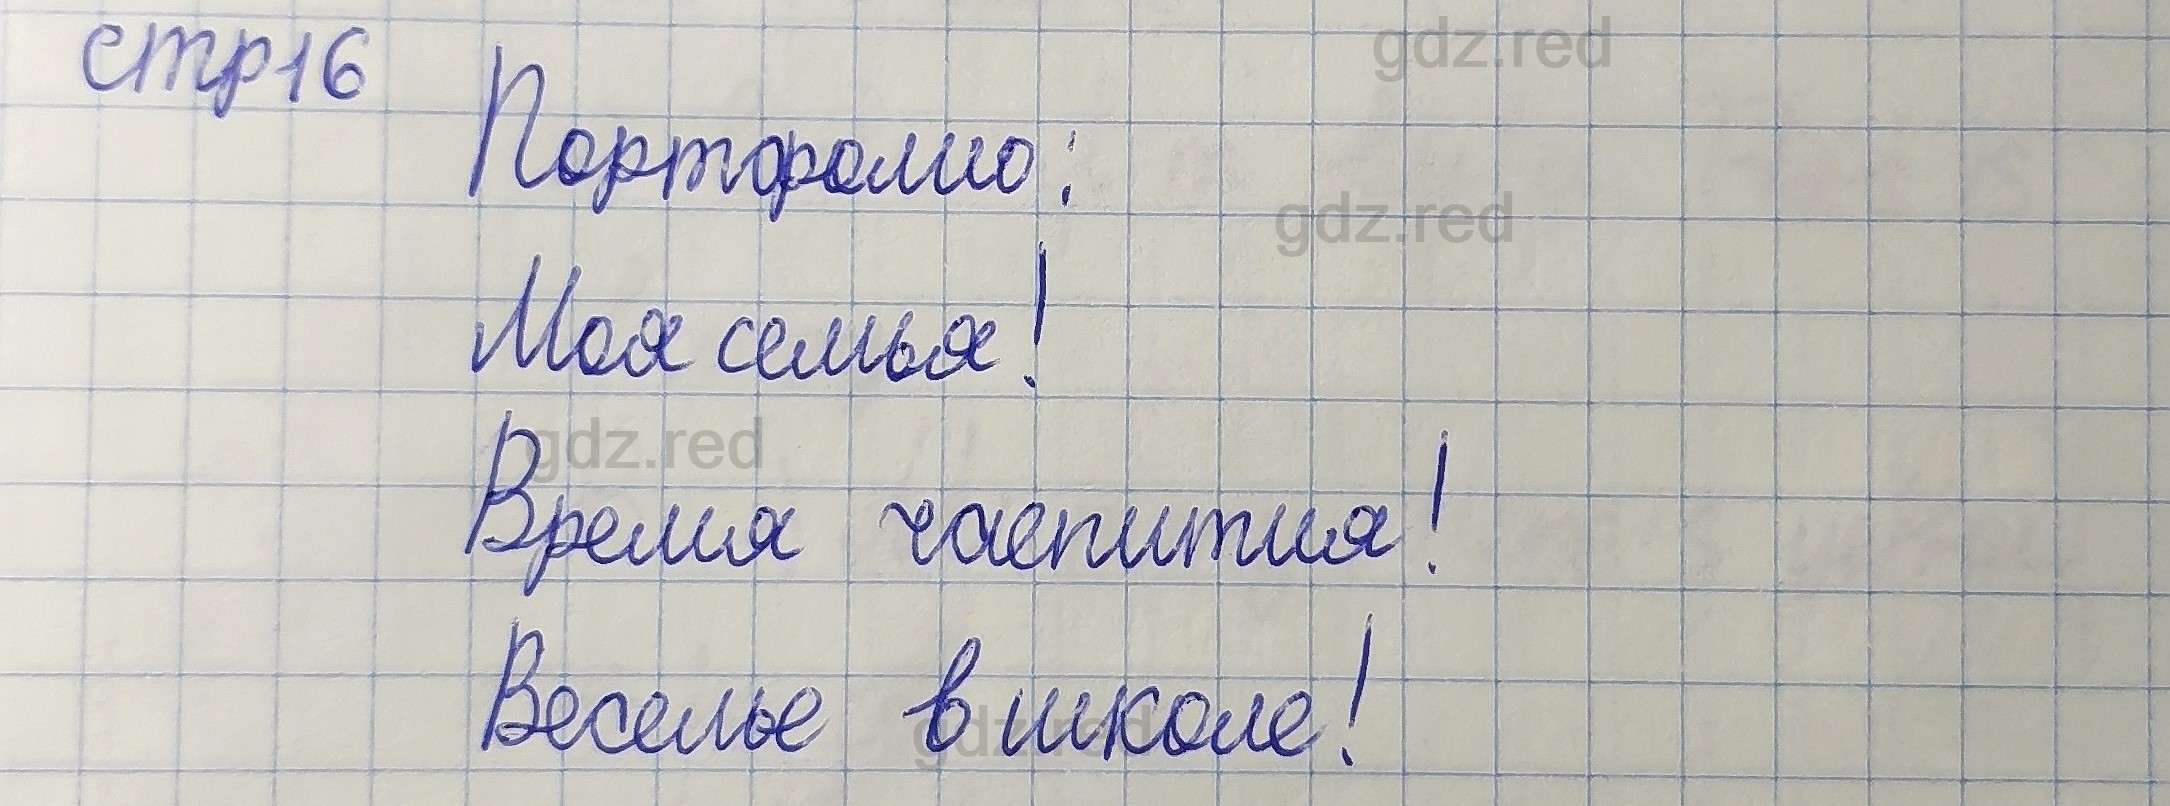 стр 16
gdz.red
Портфолио:
gdz.red
Моя семья!
gdz.red
Время чаепития!
Веселье в школе!
gdz.red